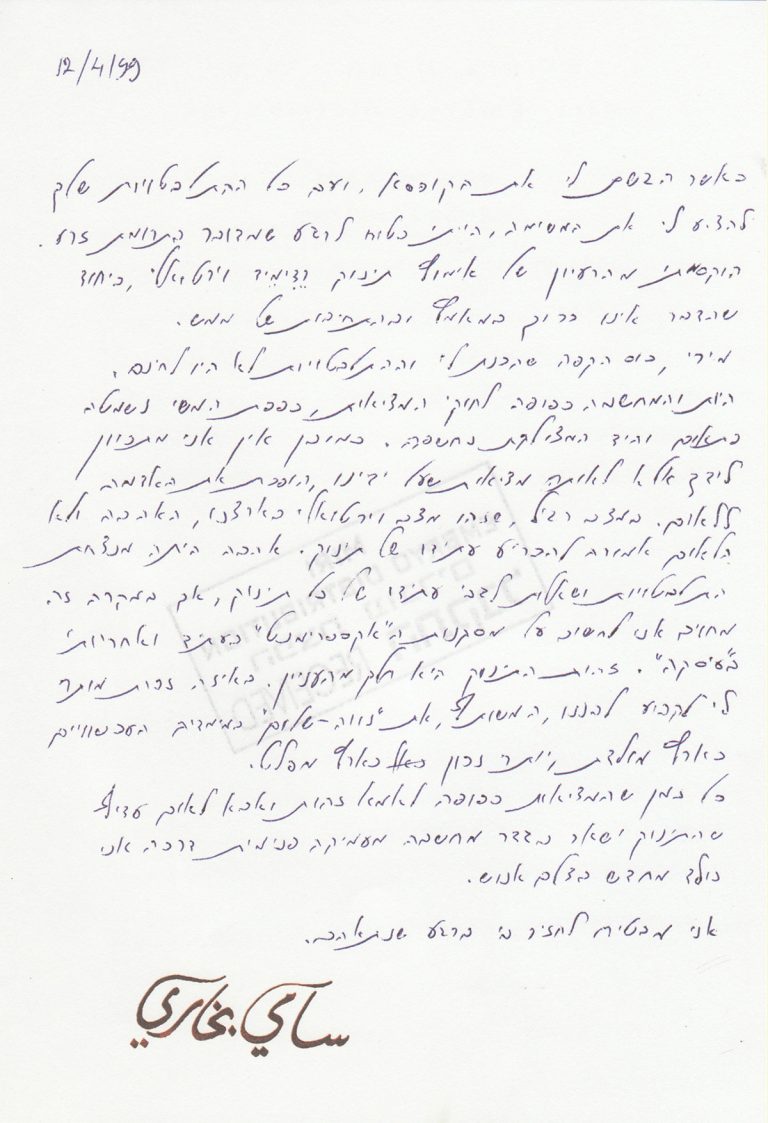 12/4/99
כאשר הגשת לי את הקופסא, ועם כל ההתלבטויות שלך
להציע לי את המשימה, הייתי בטוח לרגע שמדובר בתרומת זרע.
הוקסמתי מהרעיון של אימוץ תינוק רֶדִימֵיד וירטואלי, ביחוד
שהדבר אינו כרוך במאמץ ובהתחיבות של ממש.
מירי, כוס הקפה שהכנת לי וההתלבטויות לא היו לחינם.
היות והמחשבה כפופה לחוקי המציאות, כפפת המשי נשמטה
פתאום והיד המצולקת נחשפה. כמובן אין אני מתכוון
לידך אלא לאותה מציאות שעל ידינו, הופכת את האדמה
ללאום. במצב רגיל, שזהו מצב וירטואלי בארצנו, האהבה ולא
הלאום אמורה להכריע עתידו של תינוק. אהבה היתה מנצחת
התלבטויות ושאלות לגבי עתידו של כל תינוק, אך במקרה זה
מחויב אני לחשוב על מסקנות ה"אקספרימנט" בעתיד ואחריותי
ב"עיסקה". זהות התינוק היא חלק מהעניין. באיזה זכות מותר
לי לקבוע להננו, המשותף, את "נווה-שלום" במימדים העכשוויים
כארץ מולדת, יותר נכון כארץ מפלט.
כל זמן שהמציאות כפופה לאמא זהות ואבא לאום עדיף
שהתינוק ישאר בגדר מחשבה מעמיקה פנימית דרכה אני
נולד מחדש בצלם אנוש.
אני מבטיח לחזיר בי ברגע שנתאהב.
سامي بخاري
EMBRYO DISTRIBUTION
RECEIVED